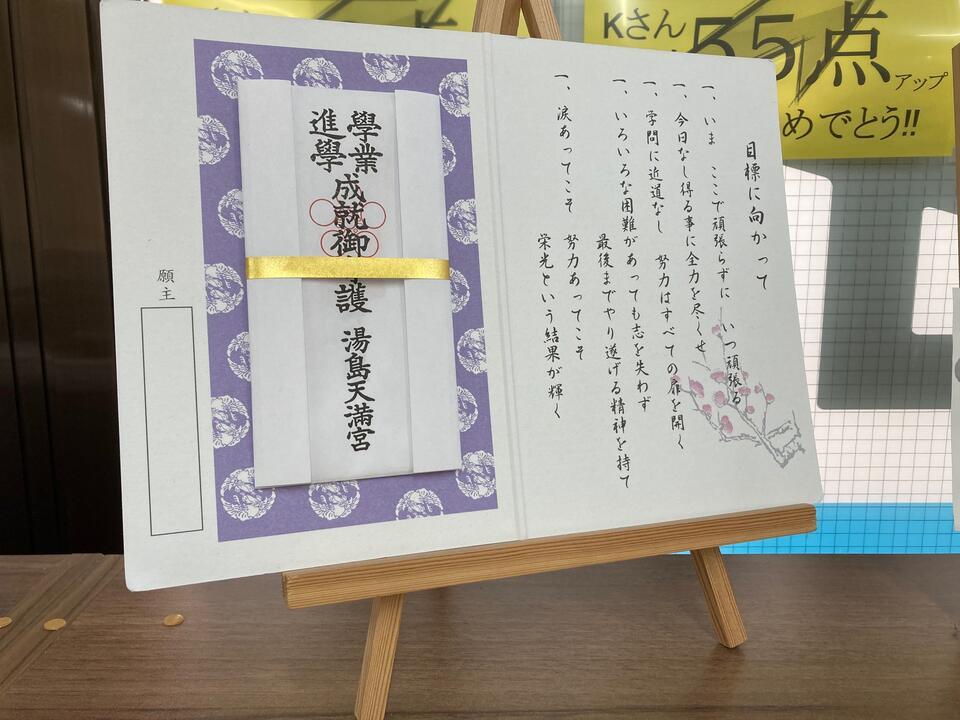 Kさん
55点
アップ
めでとう!!
目標に向かって
一、いま ここで頑張らずに いつ頑張る
一、今日なし得る事に全力を尽くせ
一、学問に近道なし 努力はすべての扉を開く
一、いろいろな困難があっても志を失わず
最後までやり遂げる精神を持て
一、涙あってこそ 努力あってこそ
栄光という結果が輝く
學業
進學
成就御
護
湯島天満宮
願主